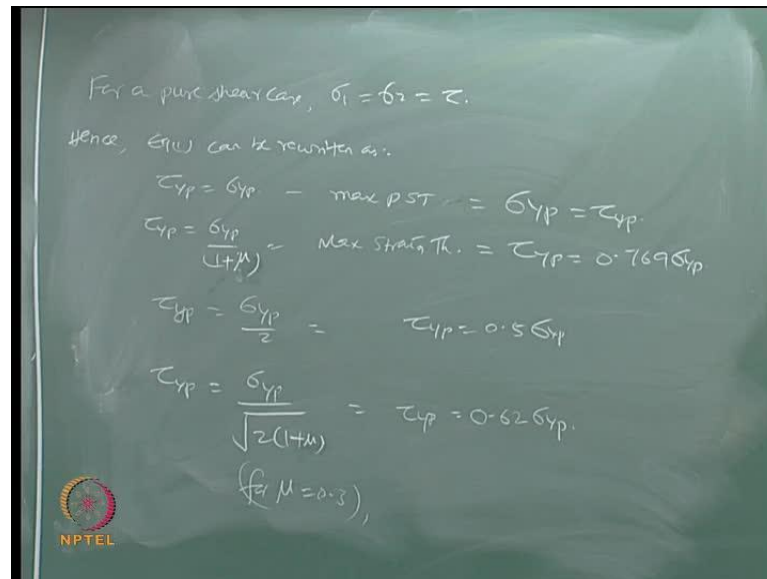 For a pure shear case, σ1 = σ2 = τ.
Hence, Eq(1) can be rewritten as:
τyp = σyp. - max PST. = σyp = τyp.
τyp = σyp/(1+μ) = Max Strain Th. = τyp = 0.769σyp
τyp = σyp/2 = τyp = 0.5σyp
τyp = σyp/√2(1+μ) = τyp = 0.62σyp.
(for μ = 0.3),
NPTEL